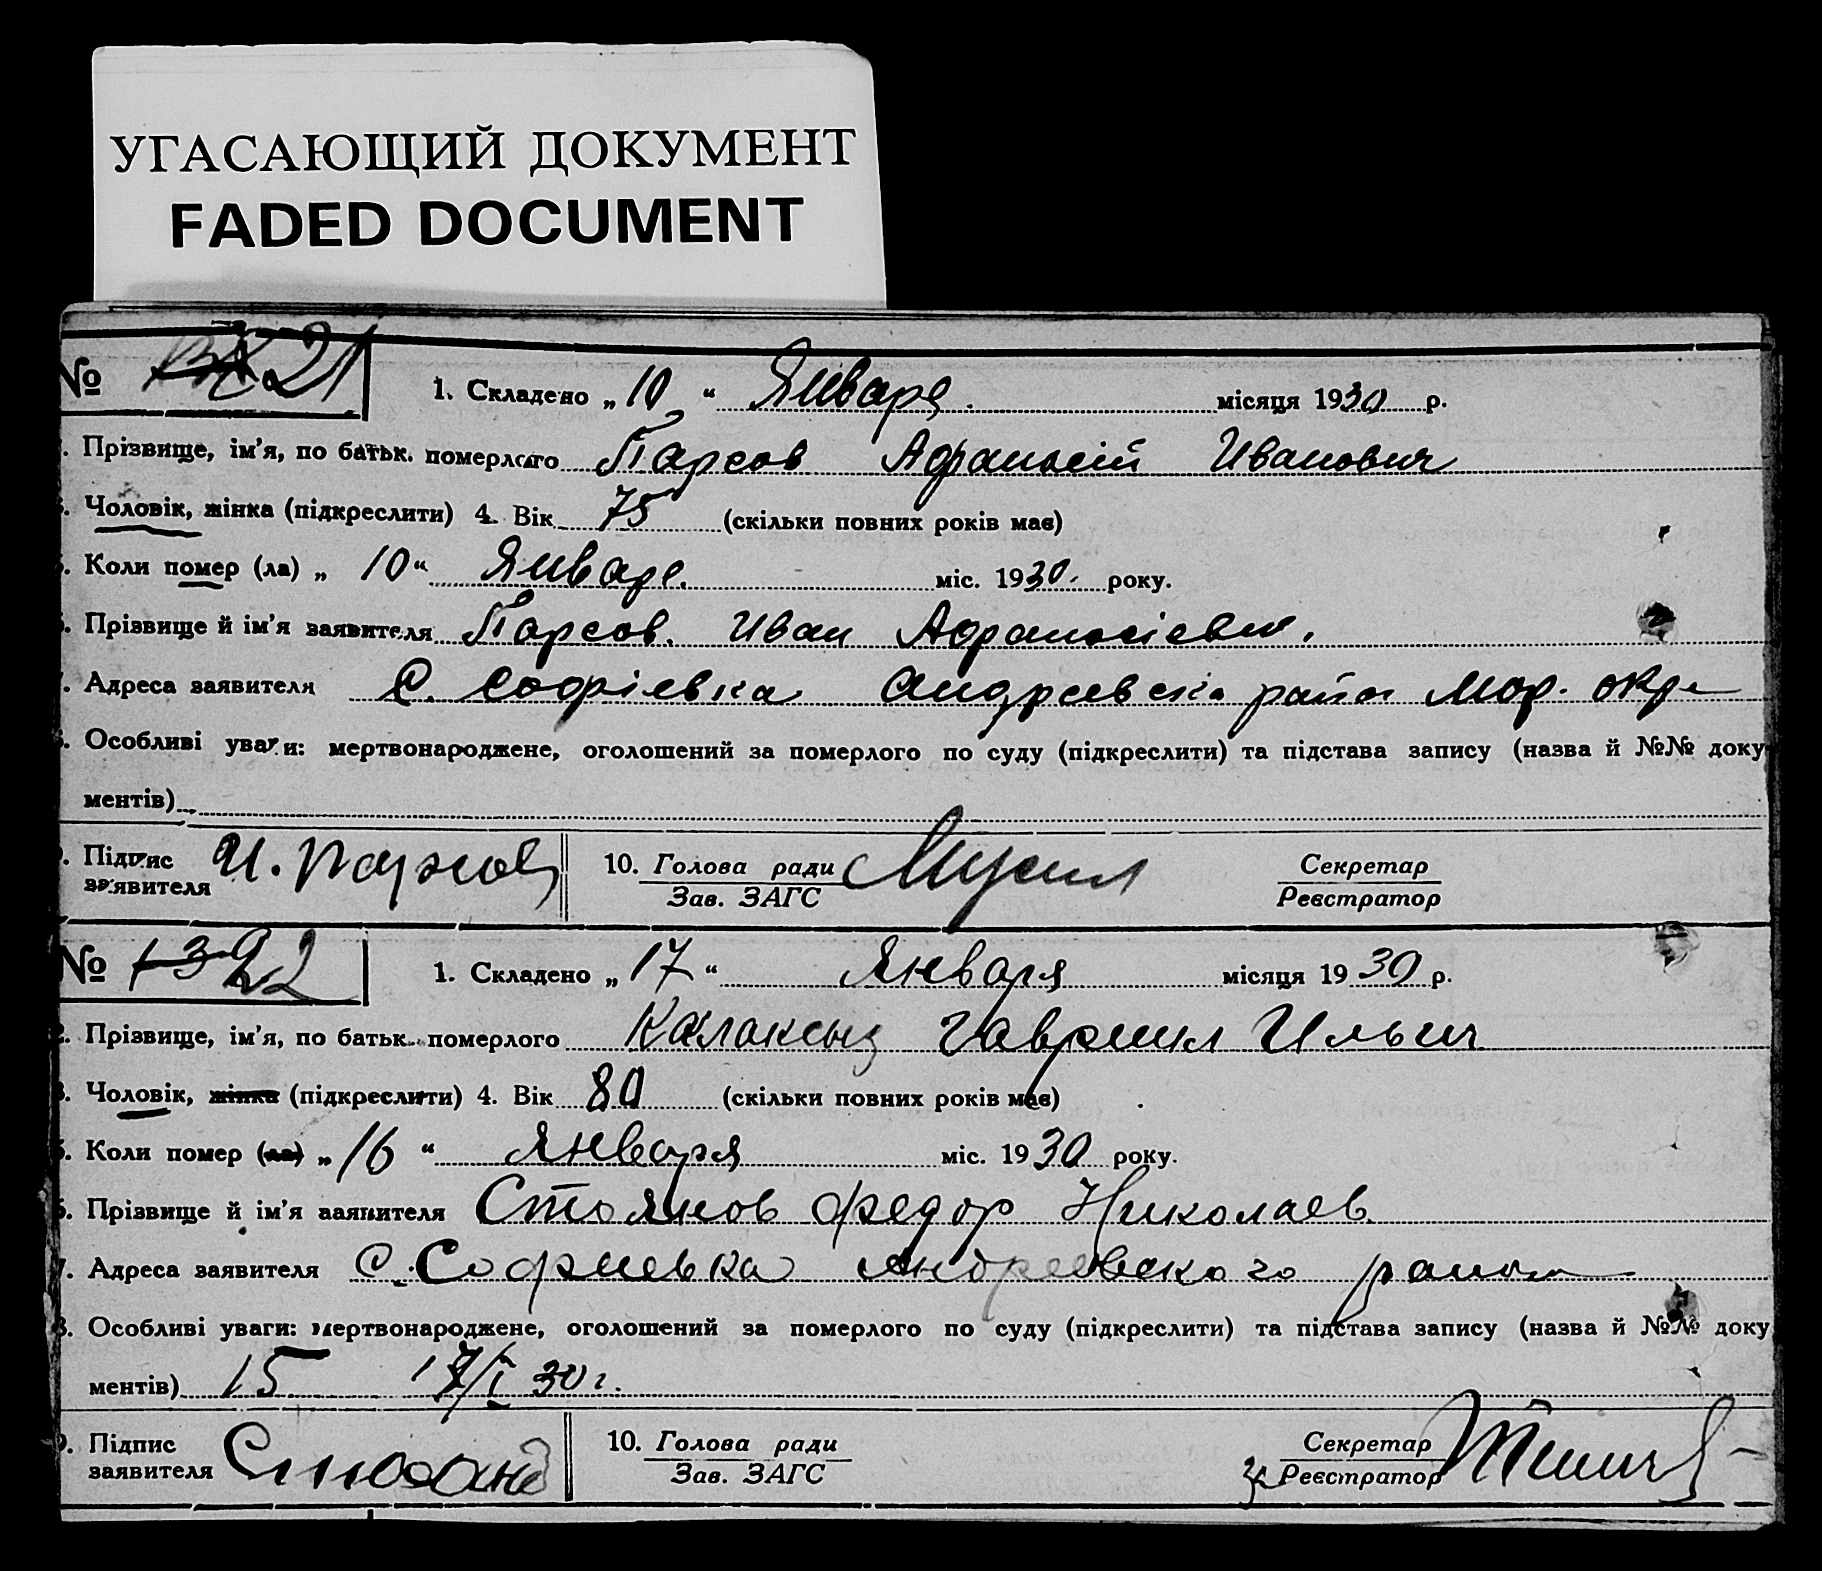 УГАСАЮЩИЙ ДОКУМЕНТ
FADED DOCUMENT
№ 21
1. Складено „10“ Января місяця 1930 р.
. Прізвище, ім'я, по батьк. померлого Парсов Афанасій Иванович
. Чоловік, жінка (підкреслити) 4. Вік 75 (скільки повних років має)
. Коли помер (ла) „ 10“ Января міс. 1930. року.
. Прізвище й ім'я заявителя Парсов. Иван Афанасіевич.
. Адреса заявителя С. Софіевка Андреевска района Мар. окр.
. Особливі уваги: мертвонароджене, оголошений за померлого по суду (підкреслити) та підстава запису (назва й №№ доку
ментів)
. Підпис заявителя И. Парсов
10. Голова ради
Зав. ЗАГС
Секретар
Реєстратор
№ 22
1. Складено „17“ Января місяця 1930 р.
2. Прізвище, ім'я, по батьк. померлого Калаксыз Гавриил Ильич
3. Чоловік, жінка (підкреслити) 4. Вік 80 (скільки повних років має)
5. Коли помер (ла) „16“ Января міс. 1930 року.
6. Прізвище й ім'я заявителя Стоянов Федор Николаев.
7. Адреса заявителя С. Софиевка Андреевского района
8. Особливі уваги: мертвонароджене, оголошений за померлого по суду (підкреслити) та підстава запису (назва й №№ доку
ментів) 15 17/I 30 г.
9. Підпис заявителя
10. Голова ради
Зав. ЗАГС
Секретар
Реєстратор